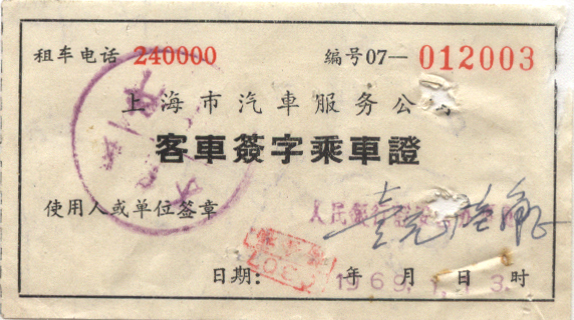 租车电话 240000 编号07—012003
上海市汽車服务公
客車簽字乘車證
使用人或单位签章
人民
壹元
日期: 年 月 日 时
1969.1.13.